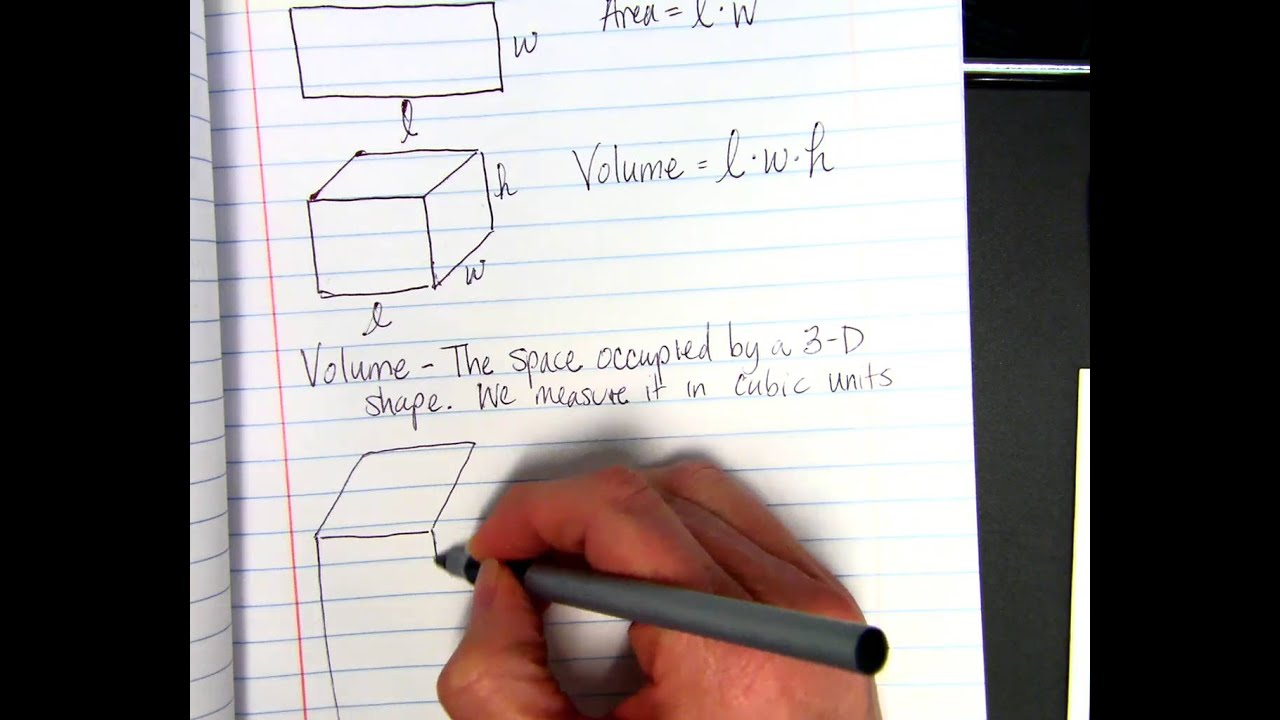 Area = l · w
w
l
Volume = l · w · h
h
w
l
Volume - The space occupied by a 3-D
shape. We measure it in cubic units